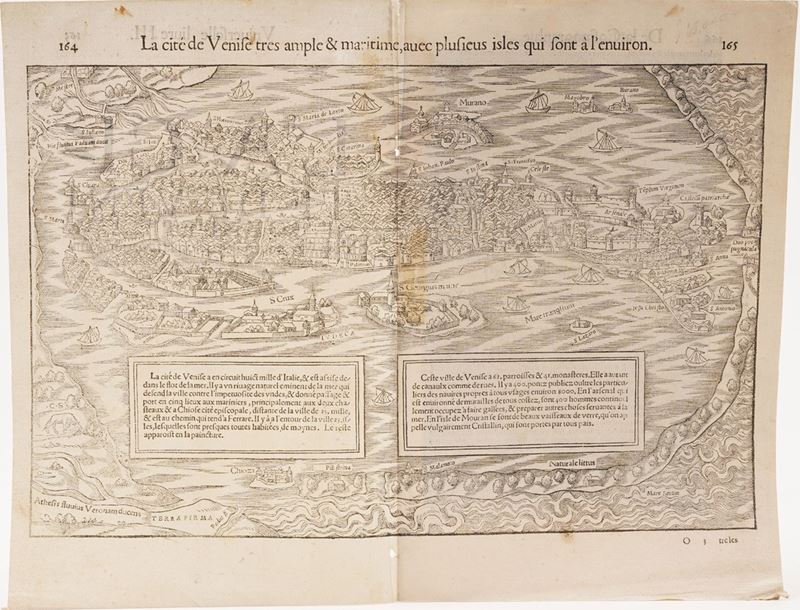 164
La cité de Venise tres ample & maritime, auec plusieus isles qui sont à l'enuiron.
165
S. Maria de
Murano
Mazorbo
Burano
S. Catarina
Celeste
Arsenal
Castell patriarcha
S. Anna
S. Antonio
S. Crux
S. Georgius maior
Mare tranquillum
S. Lazaro
IVDECA
La cité de Venise a en circuit huict mille d'Italie, & est assise de-
dans le flot de la mer. Il y a vn riuage naturel eminent de la mer qui
defend la ville contre l'impetuosité des vndes, & donne passage &
port en cinq lieux aux mariniers, principalement aux deux cha-
steaux & a Chiose cité episcopale, distante de la ville de 25. mille,
& est au chemin qui tend a Ferrare. Il y a à l'entour de la ville 25. is-
les, lesquelles sont presques toutes habitées, de moynes. Le reste
apparoist en la paincture.
Ceste ville de Venise a 62. parroisses & 41. monasteres. Elle a autant
de canaulx comme de rues. Il y a 400. pontz publicz oultre les particu-
liers des nauires propres à tous vsages enuiron 8000. En l'arsenal qui
est enuironné de murailles de tous costez, sont 400 hommes continuel
lement occupez à faire galeres, & preparer autres choses seruantes à la
mer. En l'isle de Mouran se font de beaux vaisseaux de verre, qu'on ap
pelle vulgairement Cristallin, qui sont portes par tous païs.
Chioza
Malamoco
Naturale littus
Athesis fluuius Veronam ducens
TERRA FIRMA
O 3 tteles